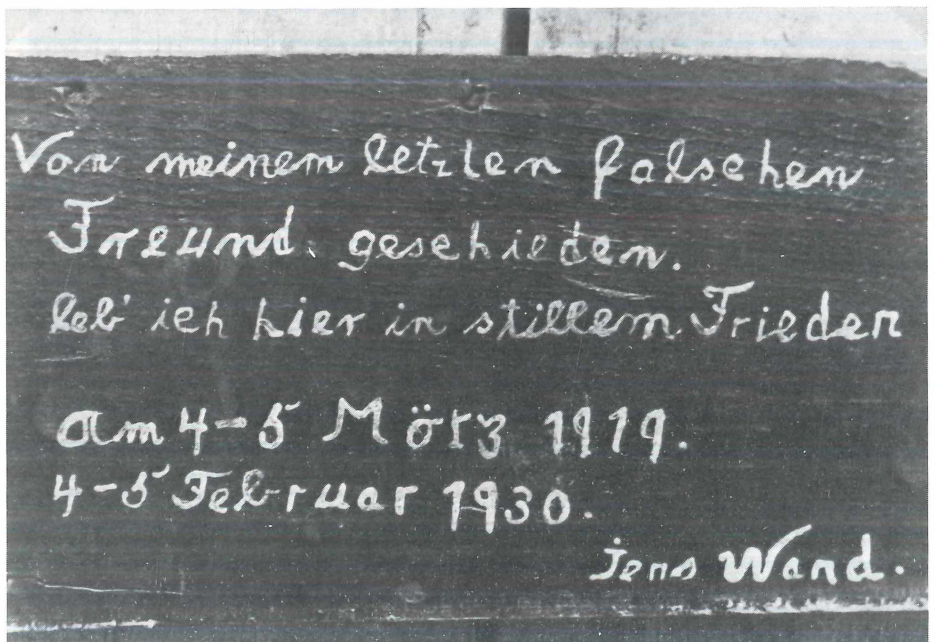 Von meinem letzten falschen
Freund. geschieden.
leb' ich hier in stillem Frieden
Am 4-5 März 1919.
4-5 Februar 1930.
Jens Wand.